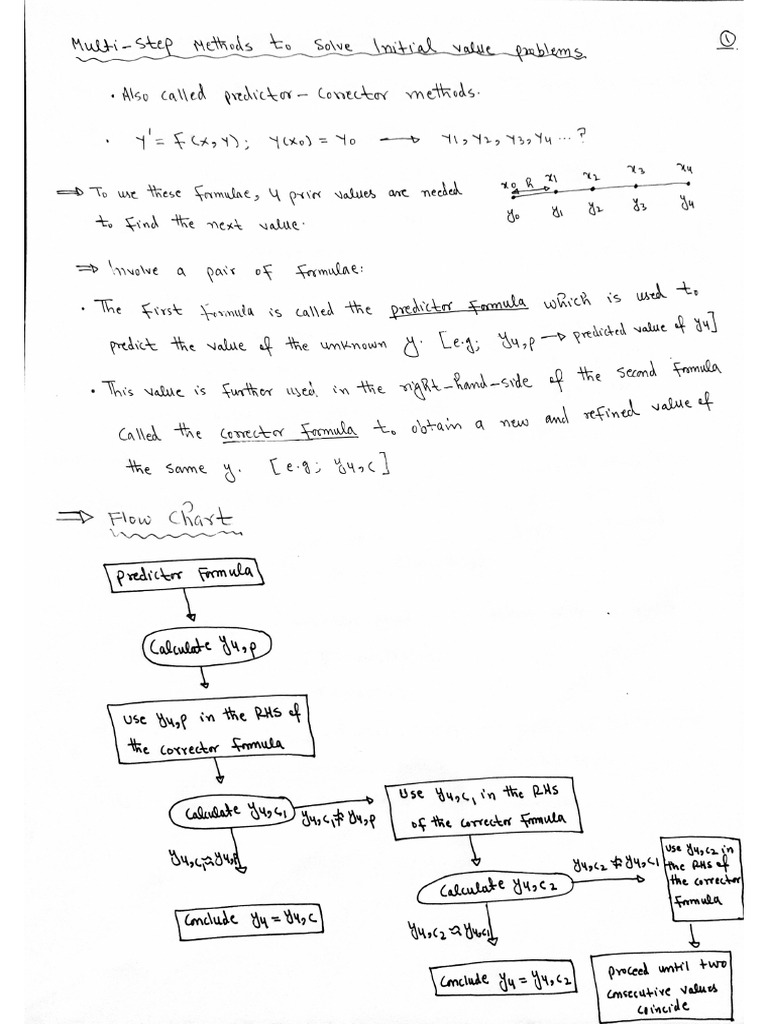 Multi-Step Methods to Solve Initial value problems
①
• Also called predictor – Corrector methods.
• y' = f(x, y); y(x0) = y0 → y1, y2, y3, y4 ... ?
⇒ To use these formulae, 4 prior values are needed
to find the next value.
x0 h x1 x2 x3 x4
y0 y1 y2 y3 y4
⇒ Involve a pair of formulae:
• The first formula is called the predictor formula which is used to
predict the value of the unknown y. [e.g; y4,p → predicted value of y4]
• This value is further used in the right-hand-side of the second formula
called the corrector formula to obtain a new and refined value of
the same y. [e.g; y4,c]
⇒ Flow Chart
Predictor Formula
Calculate y4,p
Use y4,p in the RHS of
the corrector formula
Calculate y4,c1
y4,c1 ≠ y4,p
Use y4,c1 in the RHS
of the corrector formula
y4,c1 ≈ y4,p
Conclude y4 = y4,c
Calculate y4,c2
y4,c2 ≠ y4,c1
Use y4,c2 in
the RHS of
the corrector
formula
y4,c2 ≈ y4,c1
Conclude y4 = y4,c2
Proceed until two
consecutive values
coincide